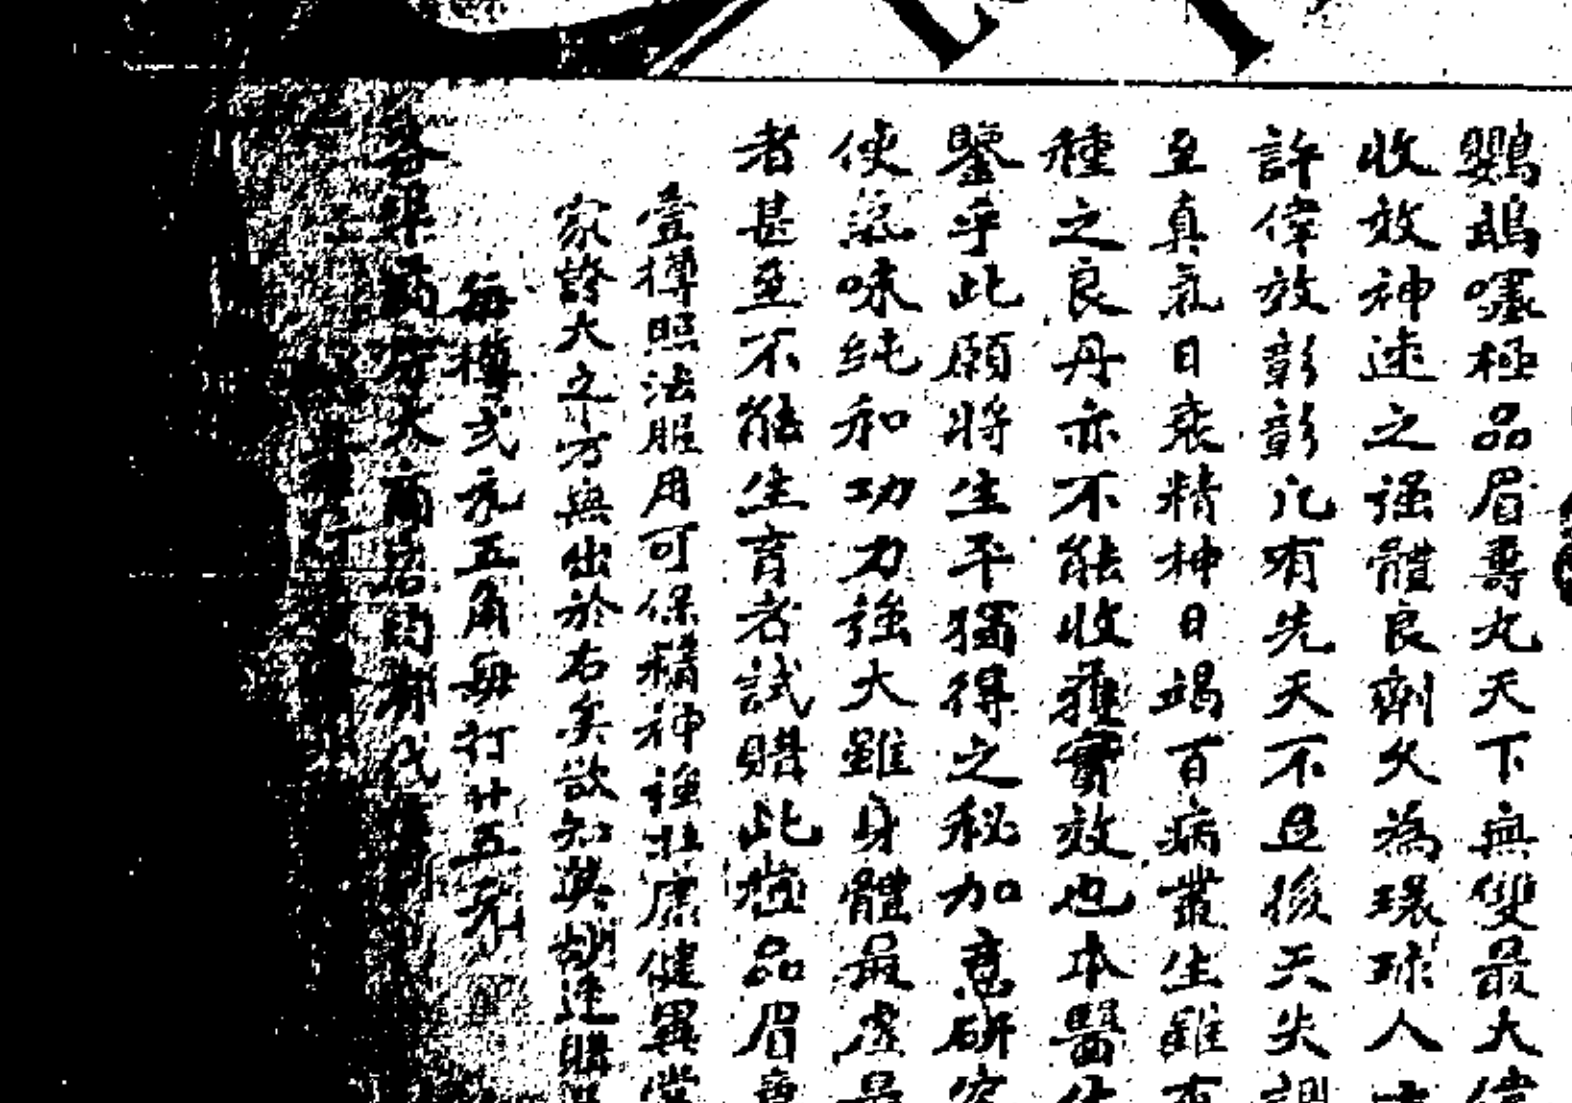 鸚鵡嘜極品眉壽丸天下無雙最大偉
收效神速之强體良劑久為環球人士
許偉效彰彰凡有先天不足後天失調
至真氣日衰精神日竭百病叢生雖有
種之良丹亦不能收獲實效也本醫
鑒乎此願將生平獨得之秘加意研究
使氣味純和功力強大雖身體最虛最
者甚至不能生育者試購此極品眉壽
壹樽照法服用可保精神強壯康健異常
家誇大之方無出於右矣欲知莫胡速購
每樽弍元五角每打廿五元
各埠 大商 均有代